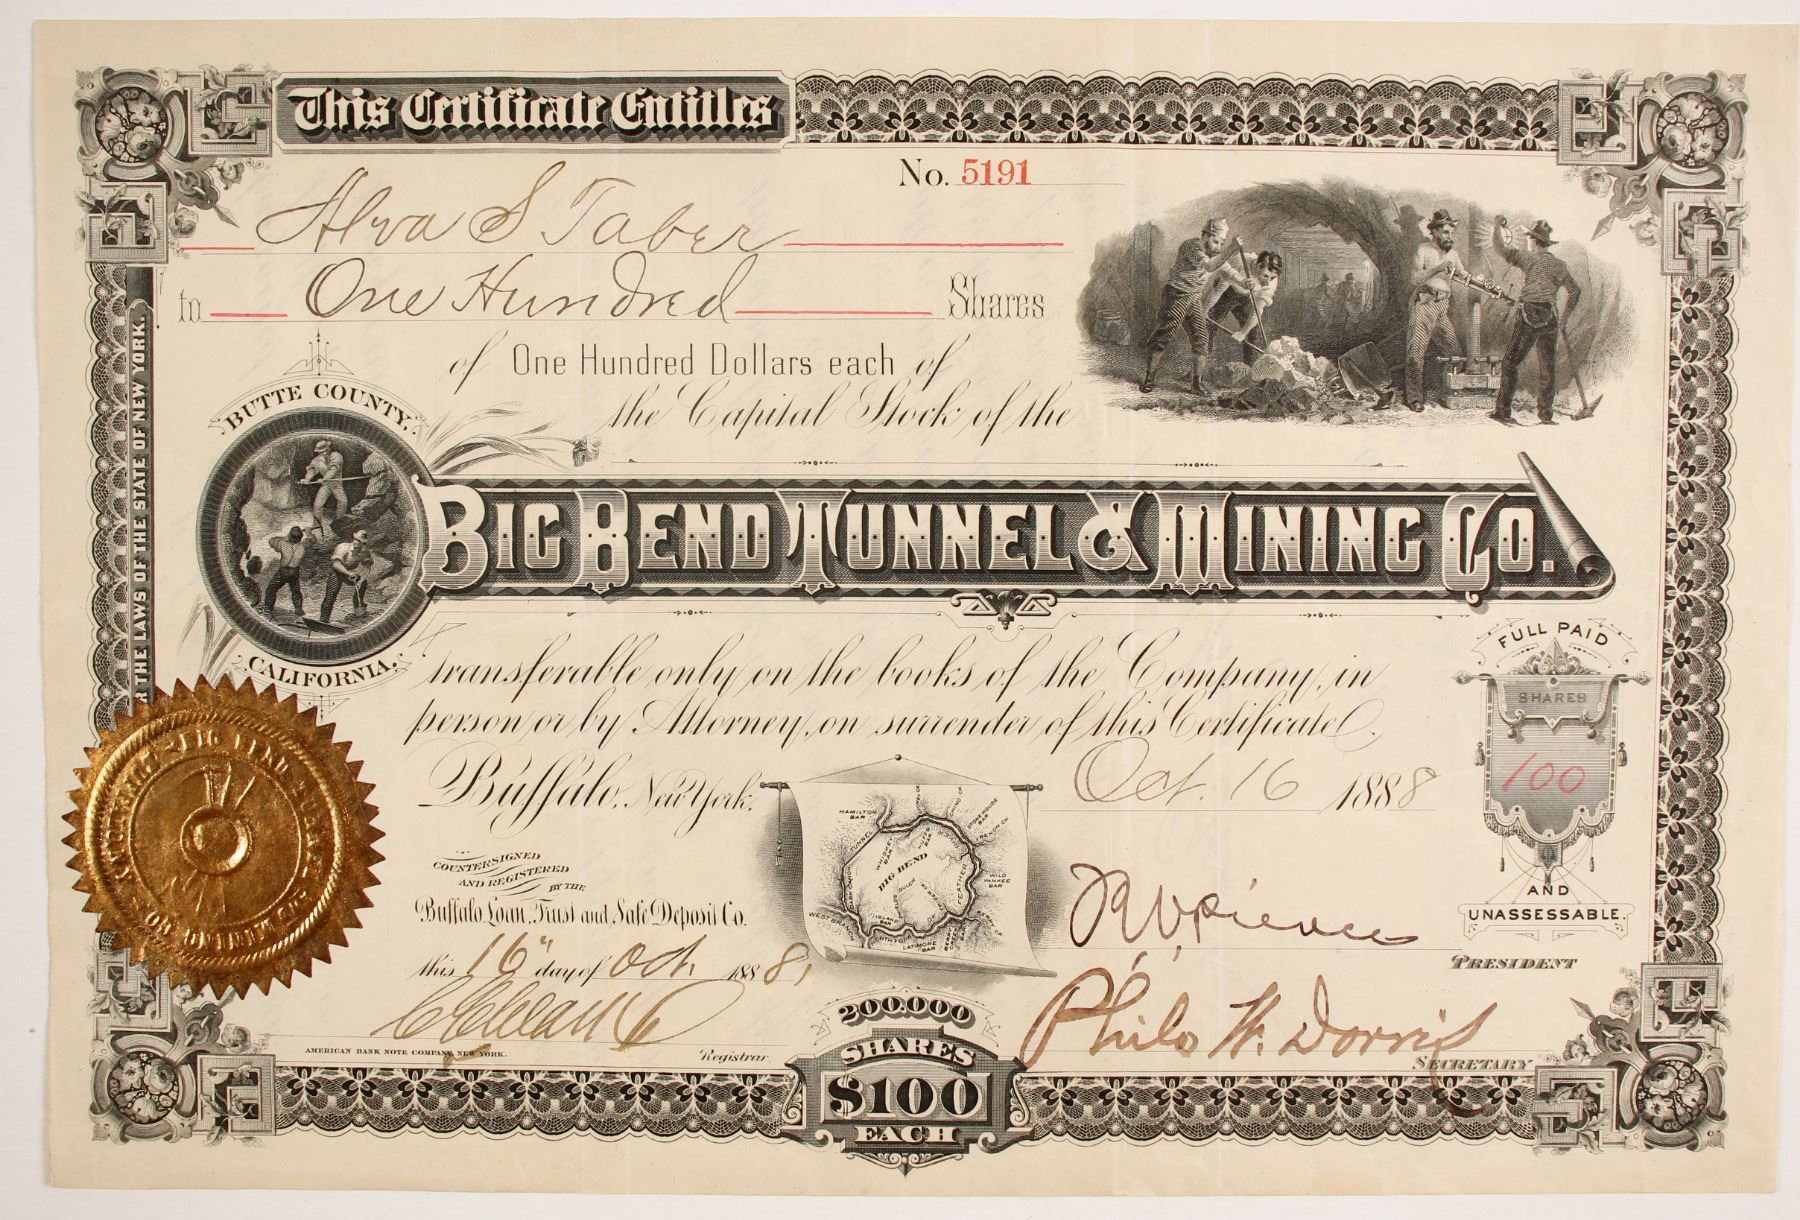 This Certificate Entitles
No. 5191
Alva S Taber
to One Hundred Shares
of One Hundred Dollars each of
the Capital Stock of the
BUTTE COUNTY,
CALIFORNIA,
BIG BEND TUNNEL & MINING CO.
THE LAWS OF THE STATE OF NEW YORK.
transferable only on the books of the Company, in
person or by Attorney, on surrender of this Certificate.
Buffalo, New York, Oct. 16 1888
FULL PAID
SHARES
100
AND
UNASSESSABLE.
COUNTERSIGNED
AND REGISTERED
BY THE
Buffalo Loan, Trust and Safe Deposit Co.
this 16" day of Oct. 1888,
Registrar
AMERICAN BANK NOTE COMPANY, NEW YORK.
HAMILTON
BAR
TUNNEL
WHISKEY
BAR
BIG BEND
STONEHOUSE
BAR
WILD
YANKEE
BAR
FEATHER
DARK CAÑON
WEST BRANCH
ISLAND
BAR
NORTH FORK
LATIMORE
BAR
R V Pierce
PRESIDENT
Philo W. Dorris
SECRETARY
200.000
SHARES
$100
EACH
BIG BEND TUNNEL